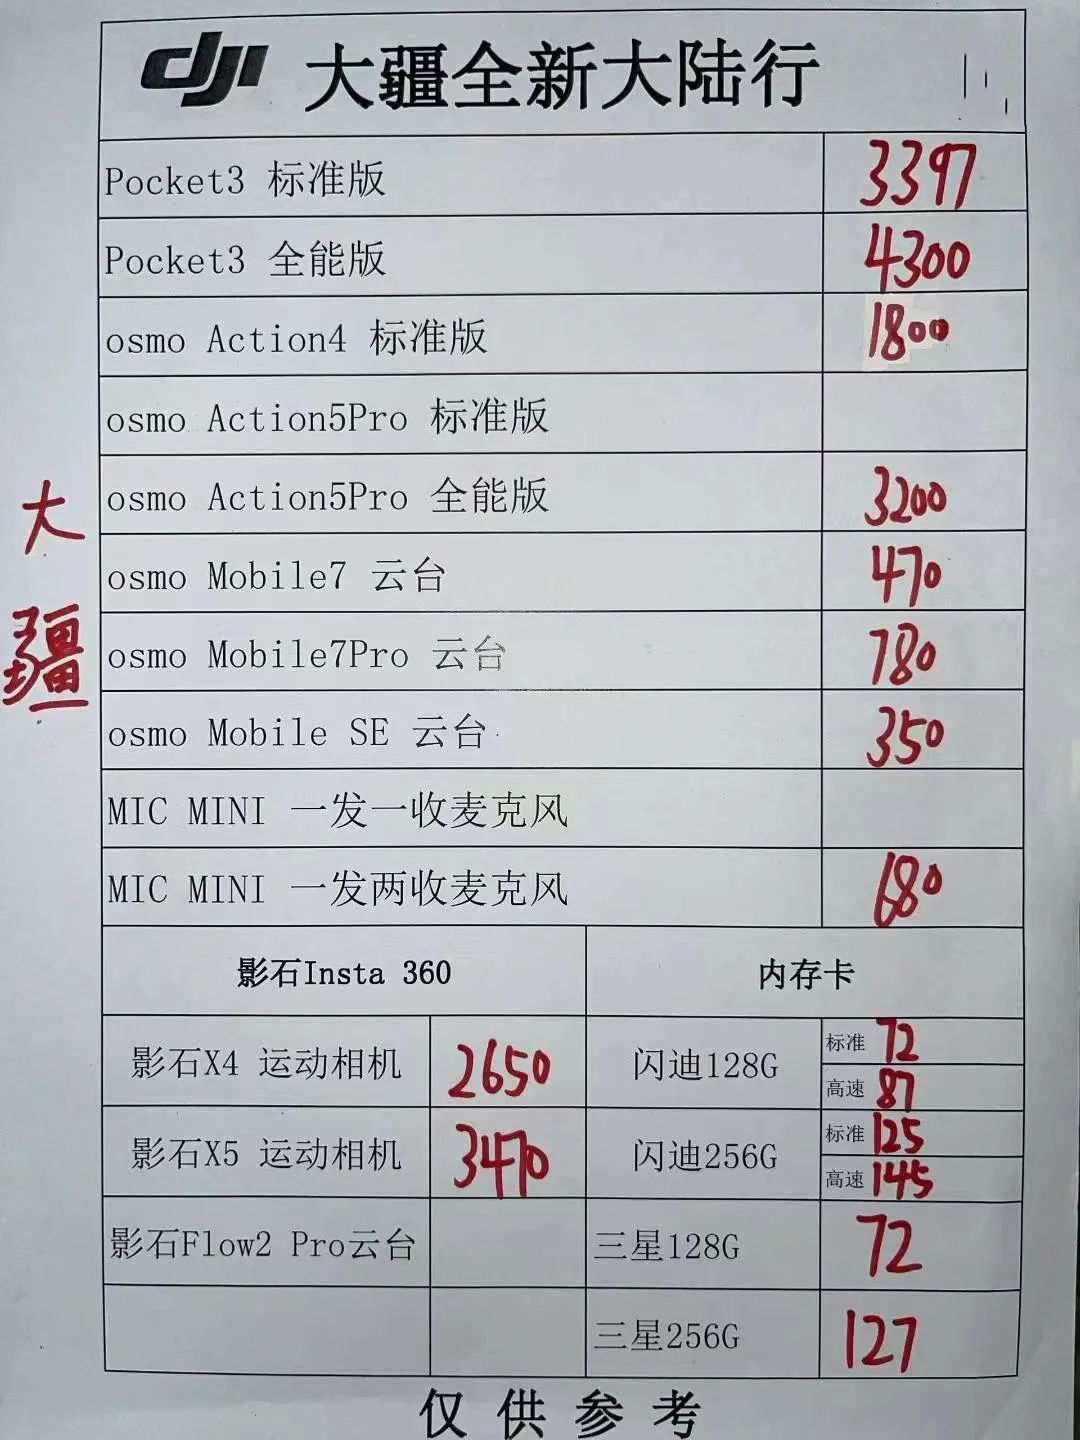 dji 大疆全新大陆行
Pocket3 标准版 3397
Pocket3 全能版 4300
osmo Action4 标准版 1800
osmo Action5Pro 标准版
osmo Action5Pro 全能版 3200
osmo Mobile7 云台 470
osmo Mobile7Pro 云台 780
osmo Mobile SE 云台 350
MIC MINI 一发一收麦克风
MIC MINI 一发两收麦克风 680
大疆
影石Insta 360 内存卡
影石X4 运动相机 2650 闪迪128G 标准 72
高速 87
影石X5 运动相机 3470 闪迪256G 标准 125
高速 145
影石Flow2 Pro云台 三星128G 72
三星256G 127
仅供参考